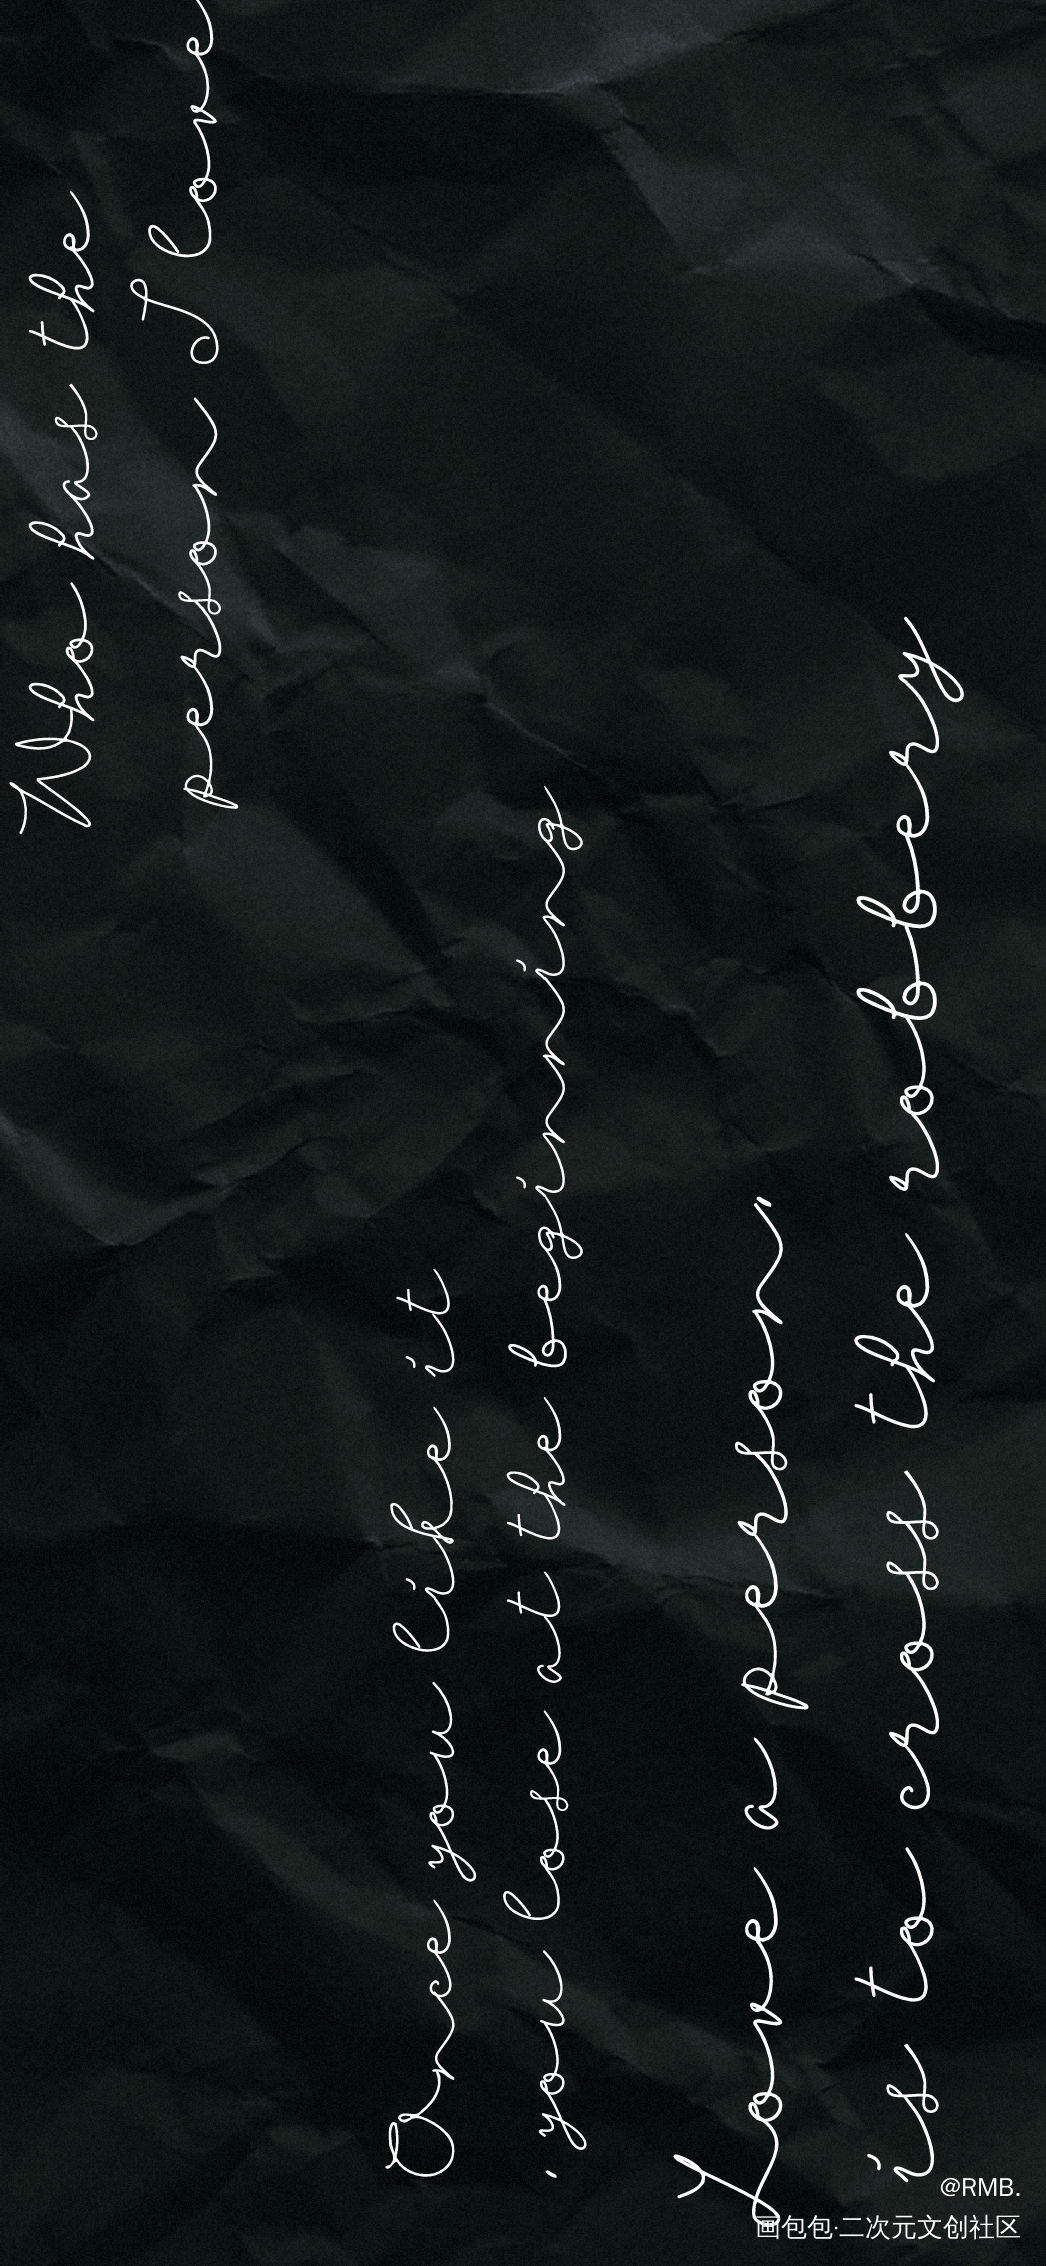 Who has the
person I love
Once you like it
, you lose at the beginning
Love a person"
is to cross the robbery
@RMB.
画包包·二次元文创社区